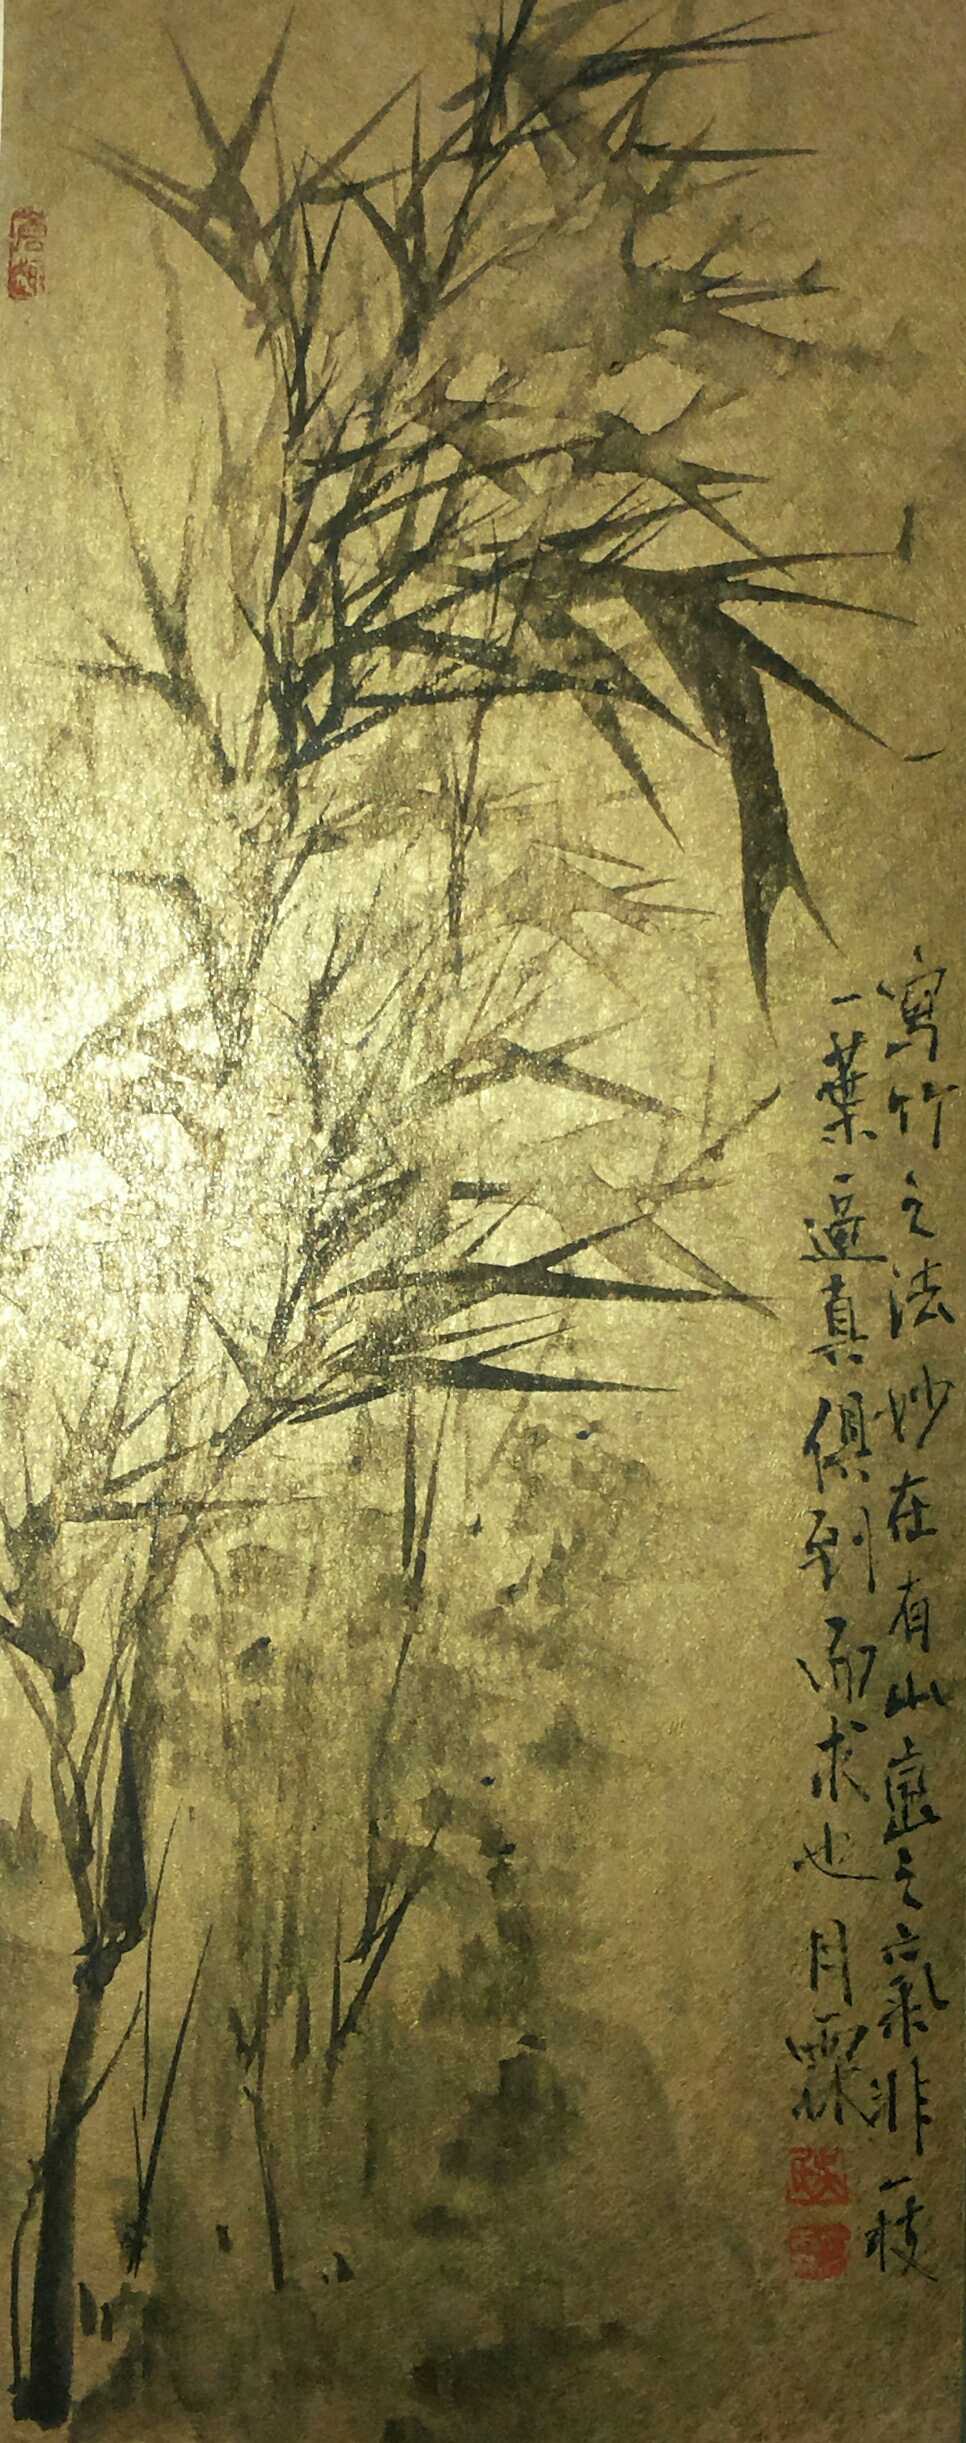 寫竹之法妙在有山崑之氣非一枝
一葉一逼真俱到而求也 月霖